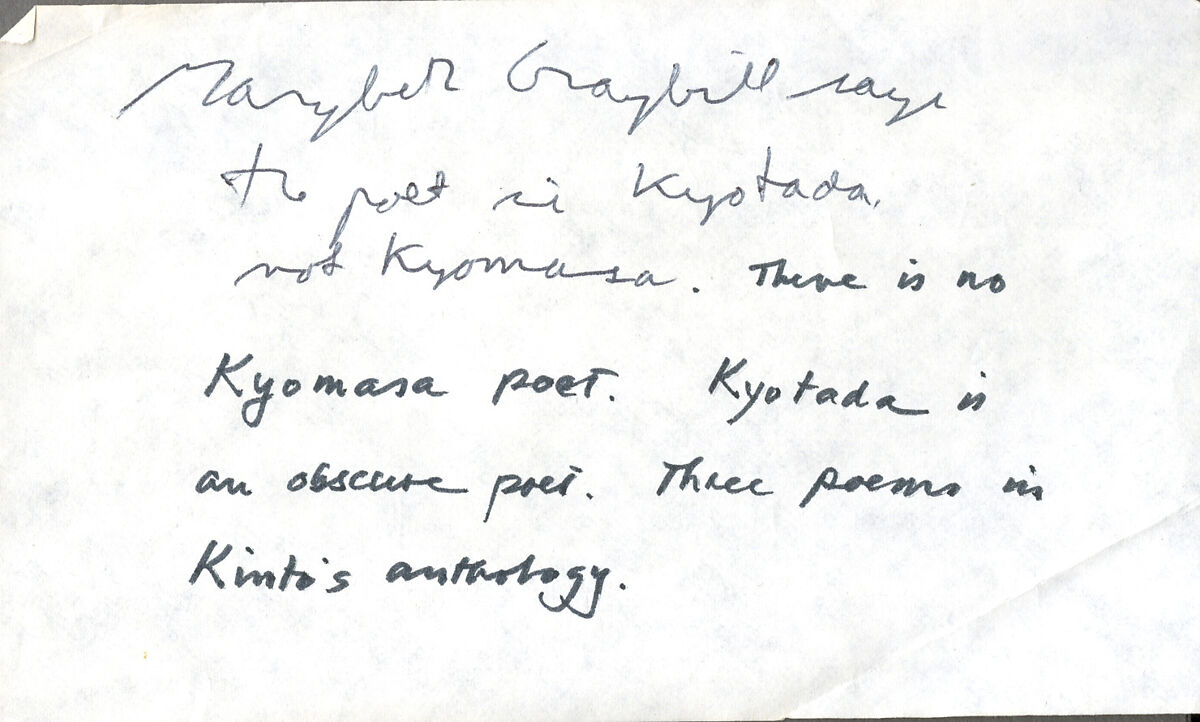 Marybeth Graybill says
the poet is Kyotada,
not Kyomasa. There is no
Kyomasa poet. Kyotada is
an obscure poet. Three poems in
Kinto's anthology.